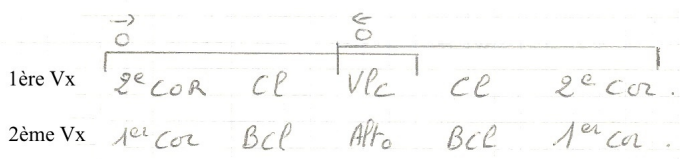 O O
1ère Vx 2e COR Cl Vlc Cl 2e Cor.
2ème Vx 1er Cor BCl Alto BCl 1er Cor.